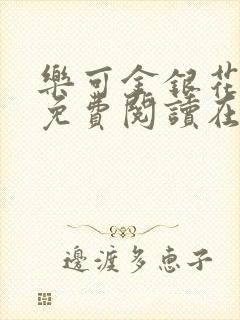 樂可金銀花
免費閱讀在
邊渡多恵子